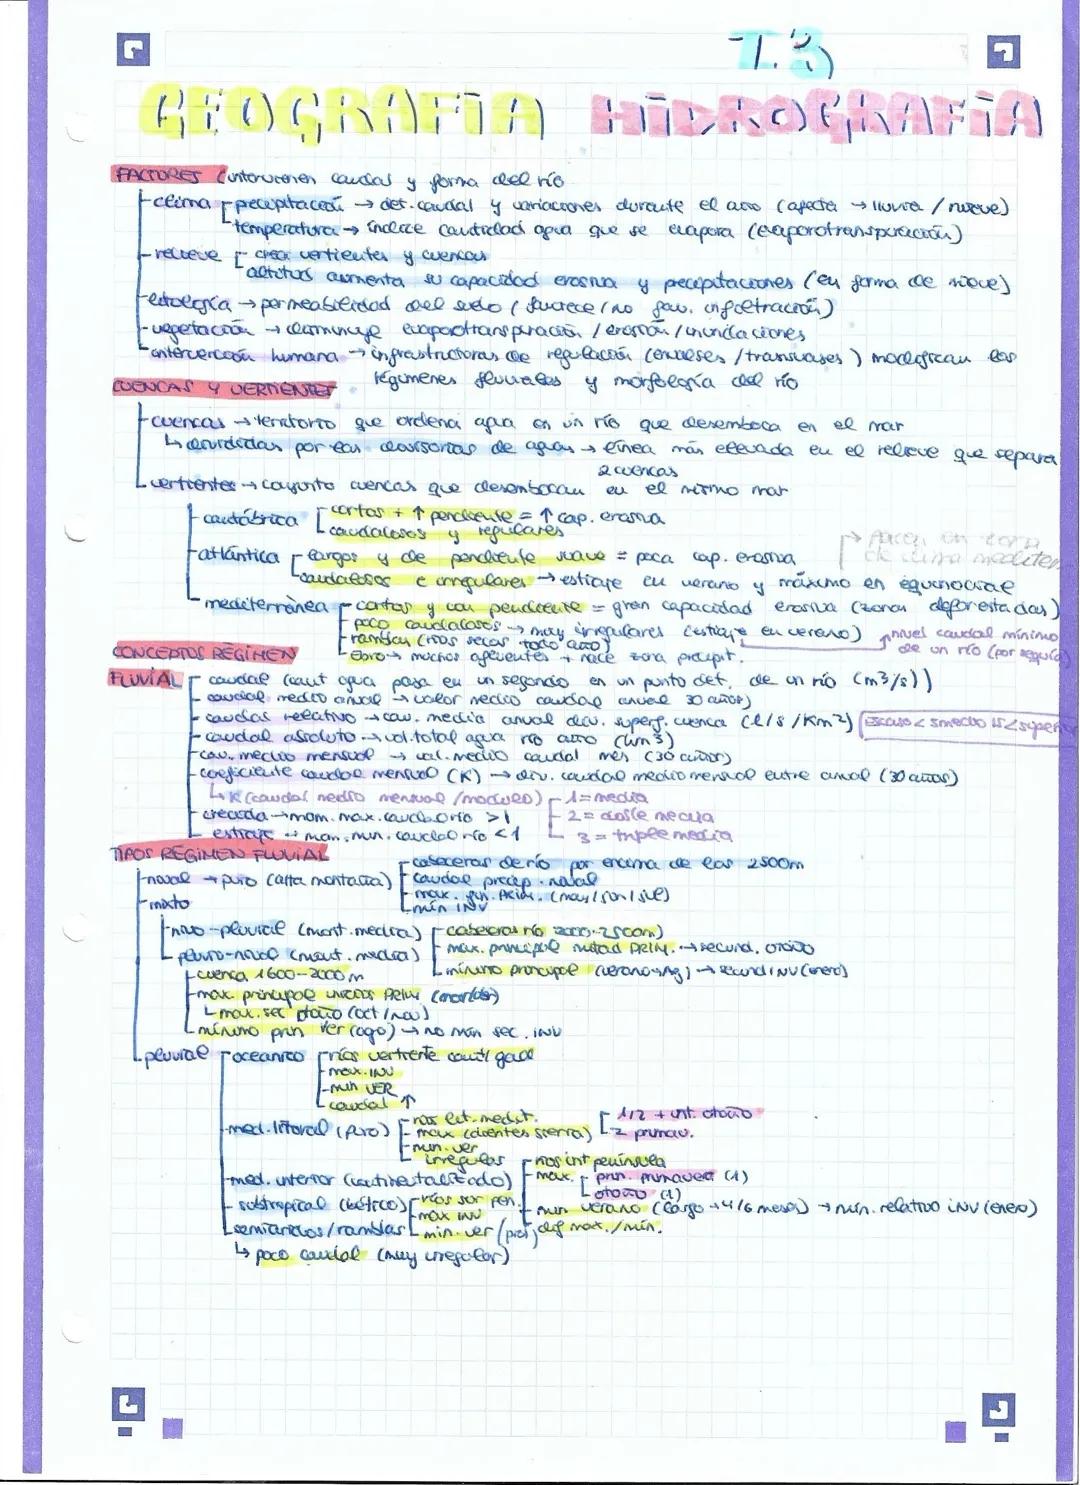 T.3
GEOGRAFÍA HIDROGRAFÍA
FACTORES (intervienen caudal y forma del río
clima precipitación → det. caudal y variaciones durante el año (afecta → lluvia / nieve)
temperatura → índice cantidad agua que se evapora (evaporotranspiración)
relieve crea vertientes y cuencas
altitud aumenta su capacidad erosiva y precipitaciones (en forma de nieve)
litología → permeabilidad del suelo (favorece / no fav. infiltración)
vegetación → disminuye evaporotranspiración / erosión / inundaciones
intervención humana → infraestructuras de regulación (embalses / transvases) modifican los
regímenes fluviales y morfología del río
CUENCAS Y VERTIENTES
cuencas → territorio que ordena agua en un río que desemboca en el mar
↳ divididas por las divisorias de aguas → línea más elevada en el relieve que separa
2 cuencas
vertientes → conjunto cuencas que desembocan en el mismo mar
cantábrica cortos + ↑ pendiente = ↑ cap. erosiva
caudalosos y regulares
atlántica largos y de pendiente suave = poca cap. erosiva
→ Nacen en zona de clima mediterr
caudalosos e irregulares → estiaje en verano y máximo en equinoccial
mediterránea cortos y con pendiente = gran capacidad erosiva (zonas deforestadas)
poco caudalosos → muy irregulares (estiaje en verano)
nivel caudal mínimo de un río (por sequía)
ramblas (ríos secos todo año)
Ebro → muchos afluentes + nace zona precipit.
CONCEPTOS RÉGIMEN FLUVIAL
caudal (cant agua pasa en un segundo en un punto det. de un río (m3/s))
caudal medio anual → valor medio caudal anual 30 años)
caudal relativo → cau. media anual div. superf. cuenca (l/s/km²) Escaso < 5 medio 15 < superior
caudal absoluto → vol. total agua río año (hm3)
cau. medio mensual → val. medio caudal mes (30 años)
coeficiente caudal mensual (K) → div. caudal medio mensual entre anual (30 años)
↳ K (caudal medio mensual / módulo) 1 = media
2 = doble media
3 = triple media
crecida → mom. max. caudal río > 1
estiaje → mom. min. caudal río < 1
TIPOS RÉGIMEN FLUVIAL
nival → puro (alta montaña) cabeceras de río por encima de los 2500m
caudal precip. nival
max. fin. PRIM. (may/jun/jul)
min INV
mixto
nivo-pluvial (mont. media) cabeceras río 2000-2500m)
max. principal mitad PRIM. → secund. OTOÑO
mínimo principal (verano → Ag) → secund INV (enero)
pluvio-nival (mont. media)
cuenca 1600-2000 m
max. principal inicios PRIM (marzo)
max. sec otoño (oct / nov)
mínimo prin ver (ago) → no mín sec. INV
pluvial oceánico ríos vertiente cant/gall
max. INV
min VER
caudal ↑
med. litoral (puro) ríos lit. medit.
max (dientes sierra) 1/2 + int. otoño
2 primav.
min. ver
irregular
med. interior (continentalizado) ríos int península
max. prin. primavera (1)
otoño (1)
min verano (largo → 4/6 meses) → mín. relativo INV (enero)
dif max. / min.
subtropical (bético) ríos sur pen.
max INV
min. ver
semiáridos / ramblas
↳ poco caudal (muy irregular)